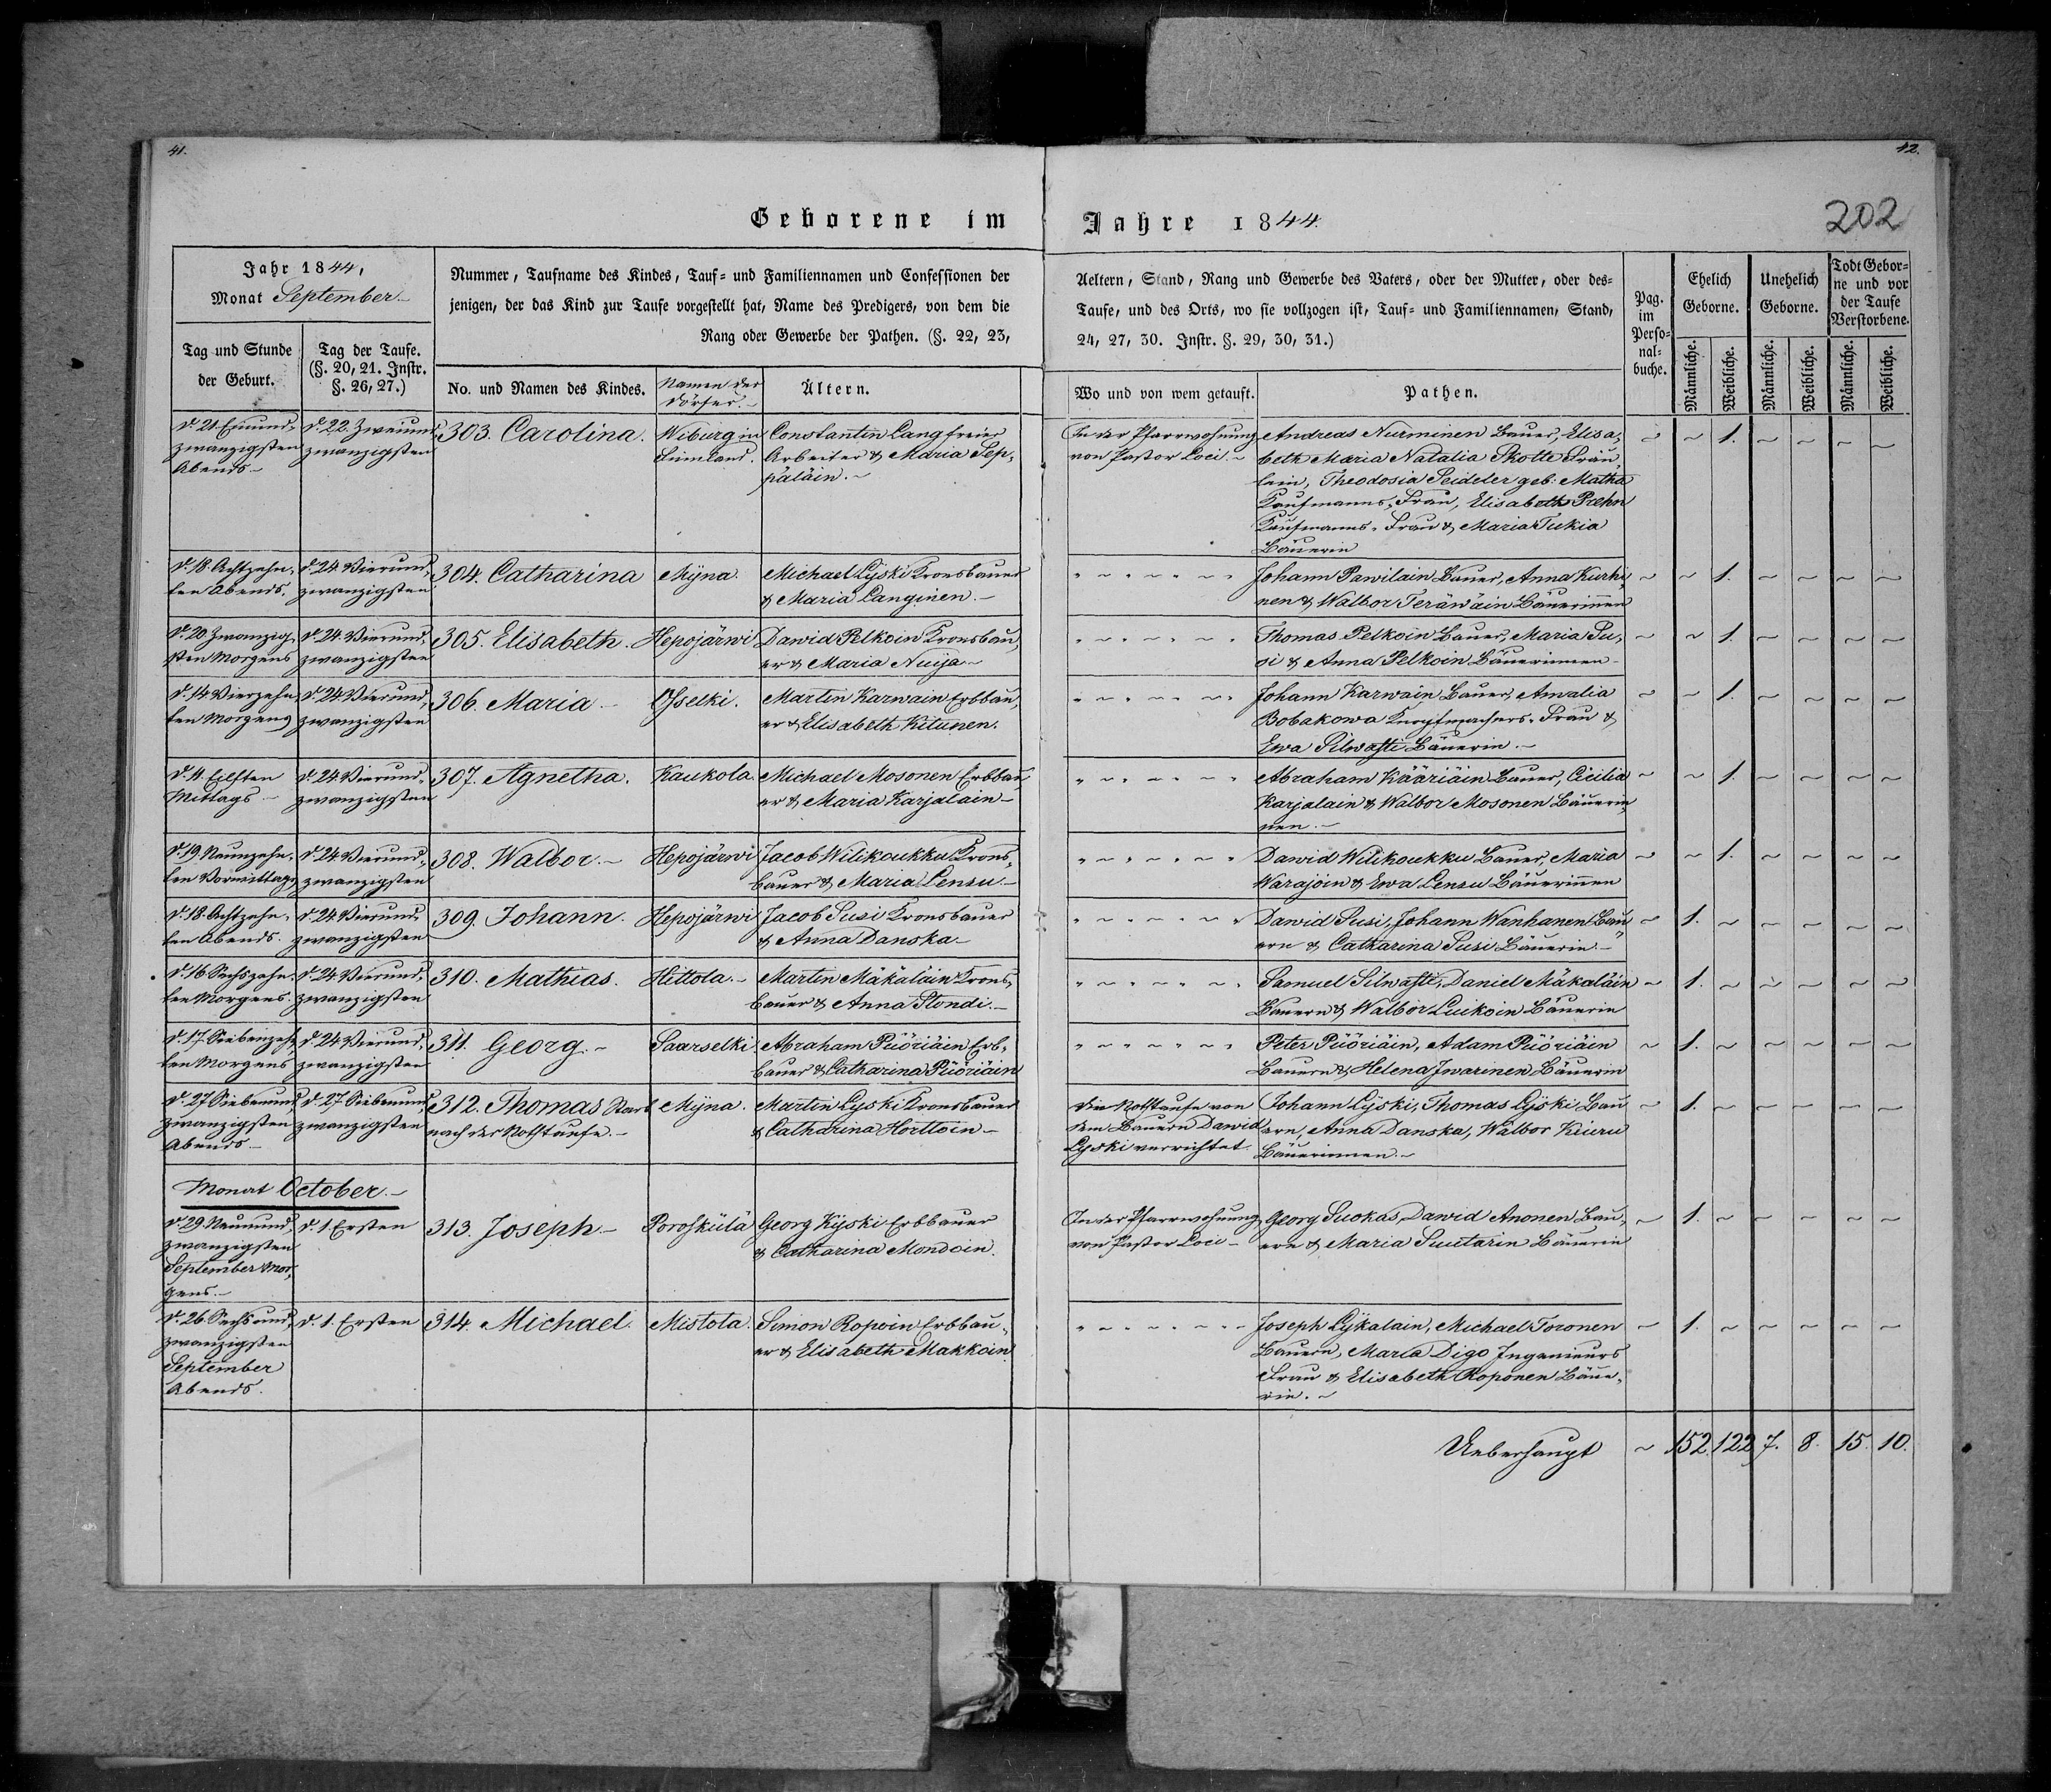 41.
42.
202
Geborene im Jahre 1844.
Jahr 1844,
Monat September
Nummer, Taufname des Kindes, Tauf- und Familiennamen und Confessionen der
jenigen, der das Kind zur Taufe vorgestellt hat, Name des Predigers, von dem die
Rang oder Gewerbe der Pathen. (§. 22, 23,
Aeltern, Stand, Rang und Gewerbe des Vaters, oder der Mutter, oder des-
Taufe, und des Orts, wo sie vollzogen ist, Tauf- und Familiennamen, Stand,
24, 27, 30. Instr. §. 29, 30, 31.)
Pag.
im
Perso-
nal-
buche.
Ehelich
Geborne.
Unehelich
Geborne.
Todt Gebor-
ne und vor
der Taufe
Verstorbene.
Tag und Stunde
der Geburt.
Tag der Taufe.
(§. 20, 21. Instr.
§. 26, 27.)
No. und Namen des Kindes.
Namen der
Dörfer.
Ältern.
Wo und von wem getauft.
Pathen.
Männliche.
Weibliche.
Männliche.
Weibliche.
Männliche.
Weibliche.
d. 21. Einund-
zwanzigsten
Abends
d. 22. Zweiund-
zwanzigsten
303. Carolina.
Wiburg in
Finnland.
Constantin Lang freier
Arbeiter & Maria Sep-
päläin.
In der Pfarrwohnung
von Pastor Loci.
Andreas Nurminen Bauer, Elisa-
beth Maria Natalia Skotte Fräu-
lein, Theodosia Seideler geb. Matha
Kaufmanns-Frau, Elisabeth Pæhn
Kaufmanns-Frau & Maria Tukia
Bäuerin
~ ~ 1. ~ ~ ~ ~
d. 18. Achtzehn-
ten Abends.
d. 24. Vierund-
zwanzigsten
304. Catharina
Mÿna.
Michael Lÿski Kronsbauer
& Maria Langinen.
Johann Pawilain Bauer, Anna Kurhi-
nen & Walbor Teräwäin Bäuerinnen
~ ~ 1. ~ ~ ~ ~
d. 20. Zwanzig-
sten Morgens
d. 24. Vierund-
zwanzigsten
305. Elisabeth.
Hepojärwi
Dawid Pelkoin Kronsbau-
er & Maria Nuija
Thomas Pelkoin Bauer, Maria Su-
si & Anna Pelkoin Bäuerinnen
~ ~ 1. ~ ~ ~ ~
d. 14 Vierzehn-
ten Morgens
d. 24 Vierund-
zwanzigsten
306. Maria
Osselki.
Martin Karwain Erbbau-
er & Elisabeth Kitunen.
Johann Karwain Bauer, Amalia
Bobakowa Knopfmachers-Frau &
Ewa Silwasti Bäuerin.
~ ~ 1. ~ ~ ~ ~
d. 11. Eilften
Mittags
d. 24. Vierund-
zwanzigsten
307. Agnetha.
Kaukola.
Michael Mosonen Erbbau-
er & Maria Karjalain
Abraham Kääriäin Bauer, Cicilia
Karjalain & Walbor Mosonen Bäuerin-
nen.
~ ~ 1. ~ ~ ~ ~
d. 19. Neunzehn-
ten Vormittags
d. 24 Vierund-
zwanzigsten
308. Walbor.
Hepojärwi
Jacob Wilikoukku Krons-
bauer & Maria Lensu.
Dawid Wilikoukku Bauer, Maria
Warajoin & Ewa Lensu Bäuerinnen
~ ~ 1. ~ ~ ~ ~
d. 18. Achtzehn-
ten Abends.
d. 24 Vierund-
zwanzigsten
309. Johann.
Hepojärwi
Jacob Susi Kronsbauer
& Anna Danska
Dawid Susi, Johann Wanhanen Bau-
ern & Catharina Susi Bäuerin.
~ 1. ~ ~ ~ ~ ~
d. 16 Sechszehn-
ten Morgens.
d. 24. Vierund-
zwanzigsten
310. Mathias.
Hittola.
Martin Mäkäläin Krons-
bauer & Anna Stondi.
Samuel Silwasti, Daniel Mäkaläin
Bauern & Walbor Luikoin Bäuerin
~ 1. ~ ~ ~ ~ ~
d. 17. Siebenzehn-
ten Morgens
d. 24 Vierund-
zwanzigsten
311. Georg.
Saarselki.
Abraham Püöriäin Erb-
bauer & Catharina Püöriäin
Peter Püöriäin, Adam Püöriäin
Bauern & Helena Iwarinen Bäuerin
~ 1. ~ ~ ~ ~ ~
d. 27. Siebenund-
zwanzigsten
Abends
d. 27 Siebenund-
zwanzigsten
312. Thomas Starb
nach der Nothtaufe.
Mÿna.
Martin Lyski Kronsbauer
& Catharina Herttoin
Die Nothtaufe von
dem Bauern Dawid
Lyski verrichtet.
Johann Lÿski, Thomas Lÿski Bau-
ern, Anna Danska, Walbor Kiuru
Bäuerinnen.
~ 1. ~ ~ ~ ~ ~
Monat October.
d. 29. Neunund-
zwanzigsten
September Mor-
gens.
d. 1. Ersten
313. Joseph
Poroskülä
Georg Kÿski Erbbauer
& Catharina Mondoin.
In der Pfarrwohnung
von Pastor Loci
Georg Suokas, Dawid Anonen Bau-
ern & Maria Suutarin Bäuerin
~ 1. ~ ~ ~ ~ ~
d. 26. Sechsund-
zwanzigsten
September
Abends.
d. 1. Ersten
314. Michael.
Mistola.
Simon Ropoin Erbbau-
er & Elisabeth Makkoin.
Joseph Lÿkalain, Michael Toronen
Bauern, Maria Digo Ingenieurs
Frau & Elisabeth Roponen Bäue-
rin.
~ 1. ~ ~ ~ ~ ~
Ueberhaupt ~ 152. 122 7. 8. 15. 10.